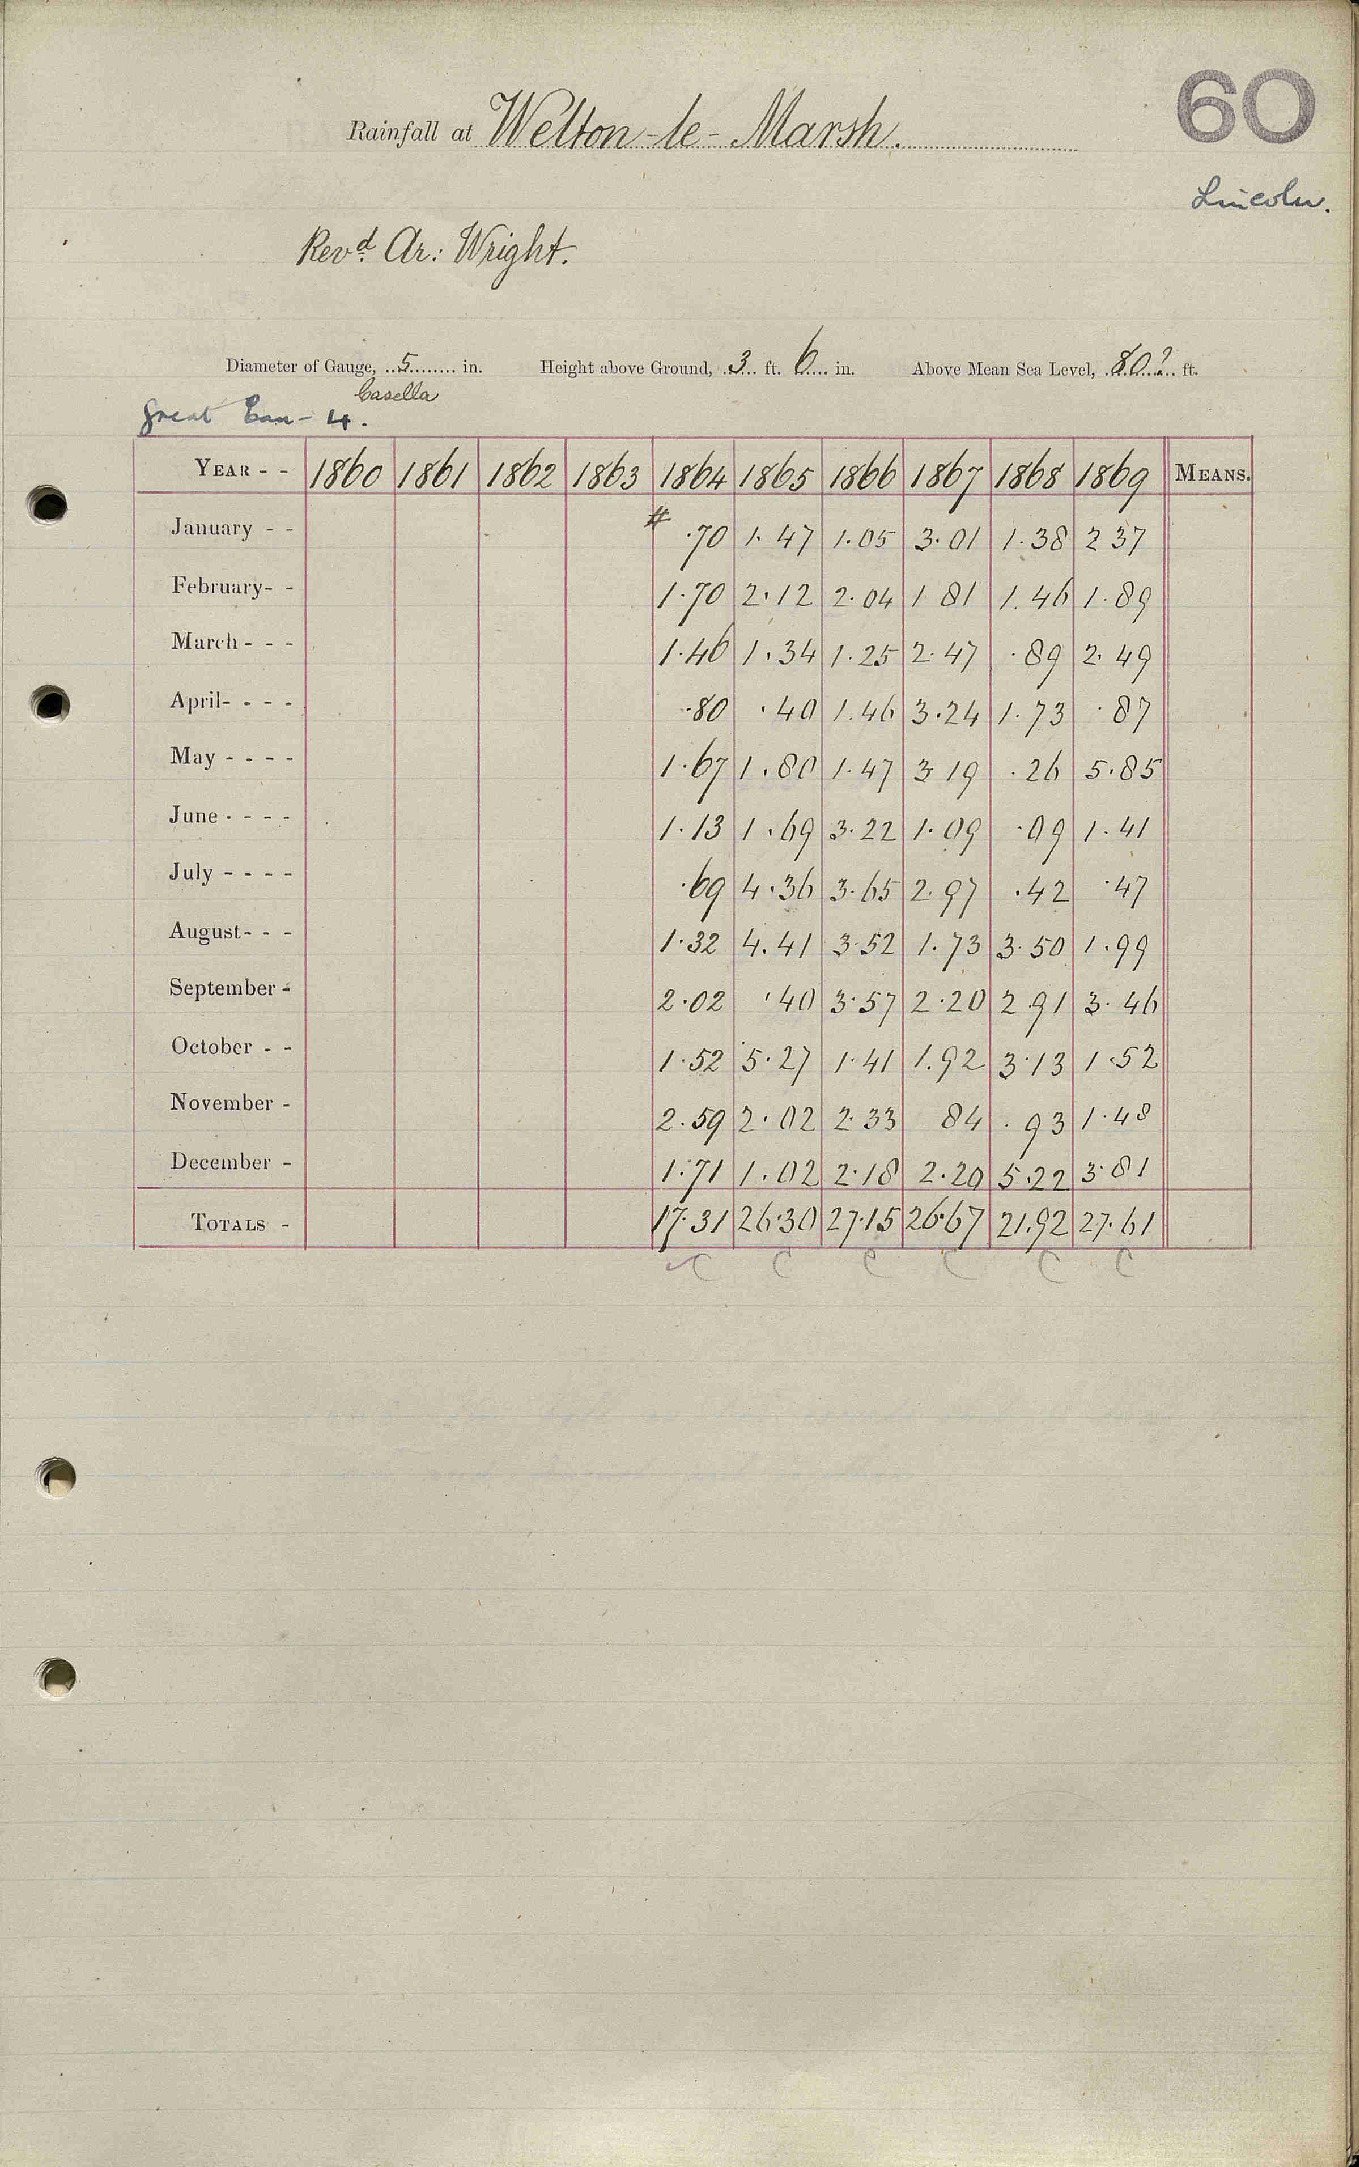 60
Rainfall at Welton-le-Marsh.
Lincoln.
Revd. Ar: Wright.
Diameter of Gauge, 5 in. Height above Ground, 3 ft. 6 in. Above Mean Sea Level, 80? ft.
Casella
Great Eau - 4.
YEAR - - 1860 1861 1862 1863 1864 1865 1866 1867 1868 1869 MEANS.
January - - # .70 1.47 1.05 3.01 1.38 2 37
February- - 1.70 2.12 2.04 1 81 1.46 1.89
March - - - 1.46 1.34 1.25 2.47 .89 2.49
April- - - - .80 .40 1.46 3.24 1.73 .87
May - - - - 1.67 1.80 1.47 3 19 .26 5.85
June - - - - 1.13 1.69 3.22 1.09 .09 1.41
July - - - - .69 4.36 3.65 2.97 .42 .47
August- - - 1.32 4.41 3.52 1.73 3.50 1.99
September - 2.02 .40 3.57 2.20 2 91 3.46
October - - 1.52 5.27 1.41 1.92 3.13 1.52
November - 2.59 2.02 2.33 84 .93 1.48
December - 1.71 1.02 2.18 2.20 5.22 3.81
TOTALS - 17.31 26.30 27.15 26.67 21.92 27.61
✓C C C C C C